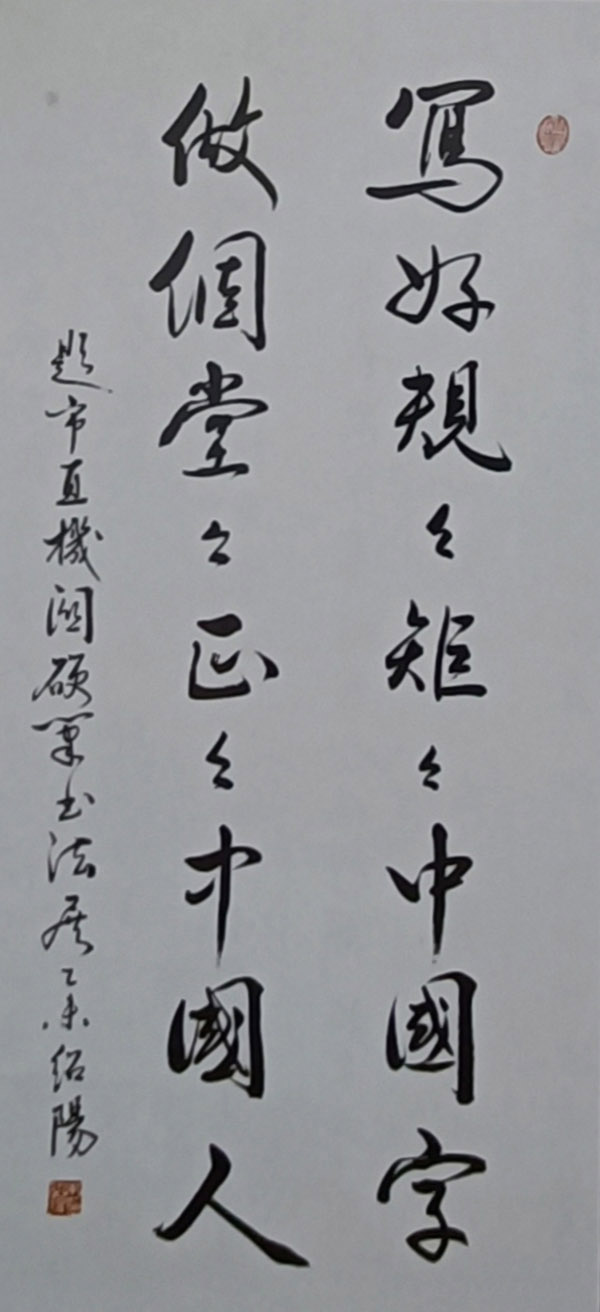 寫好規々矩々中國字
做個堂々正々中國人
題市直機關硬筆書法展乙未紹陽